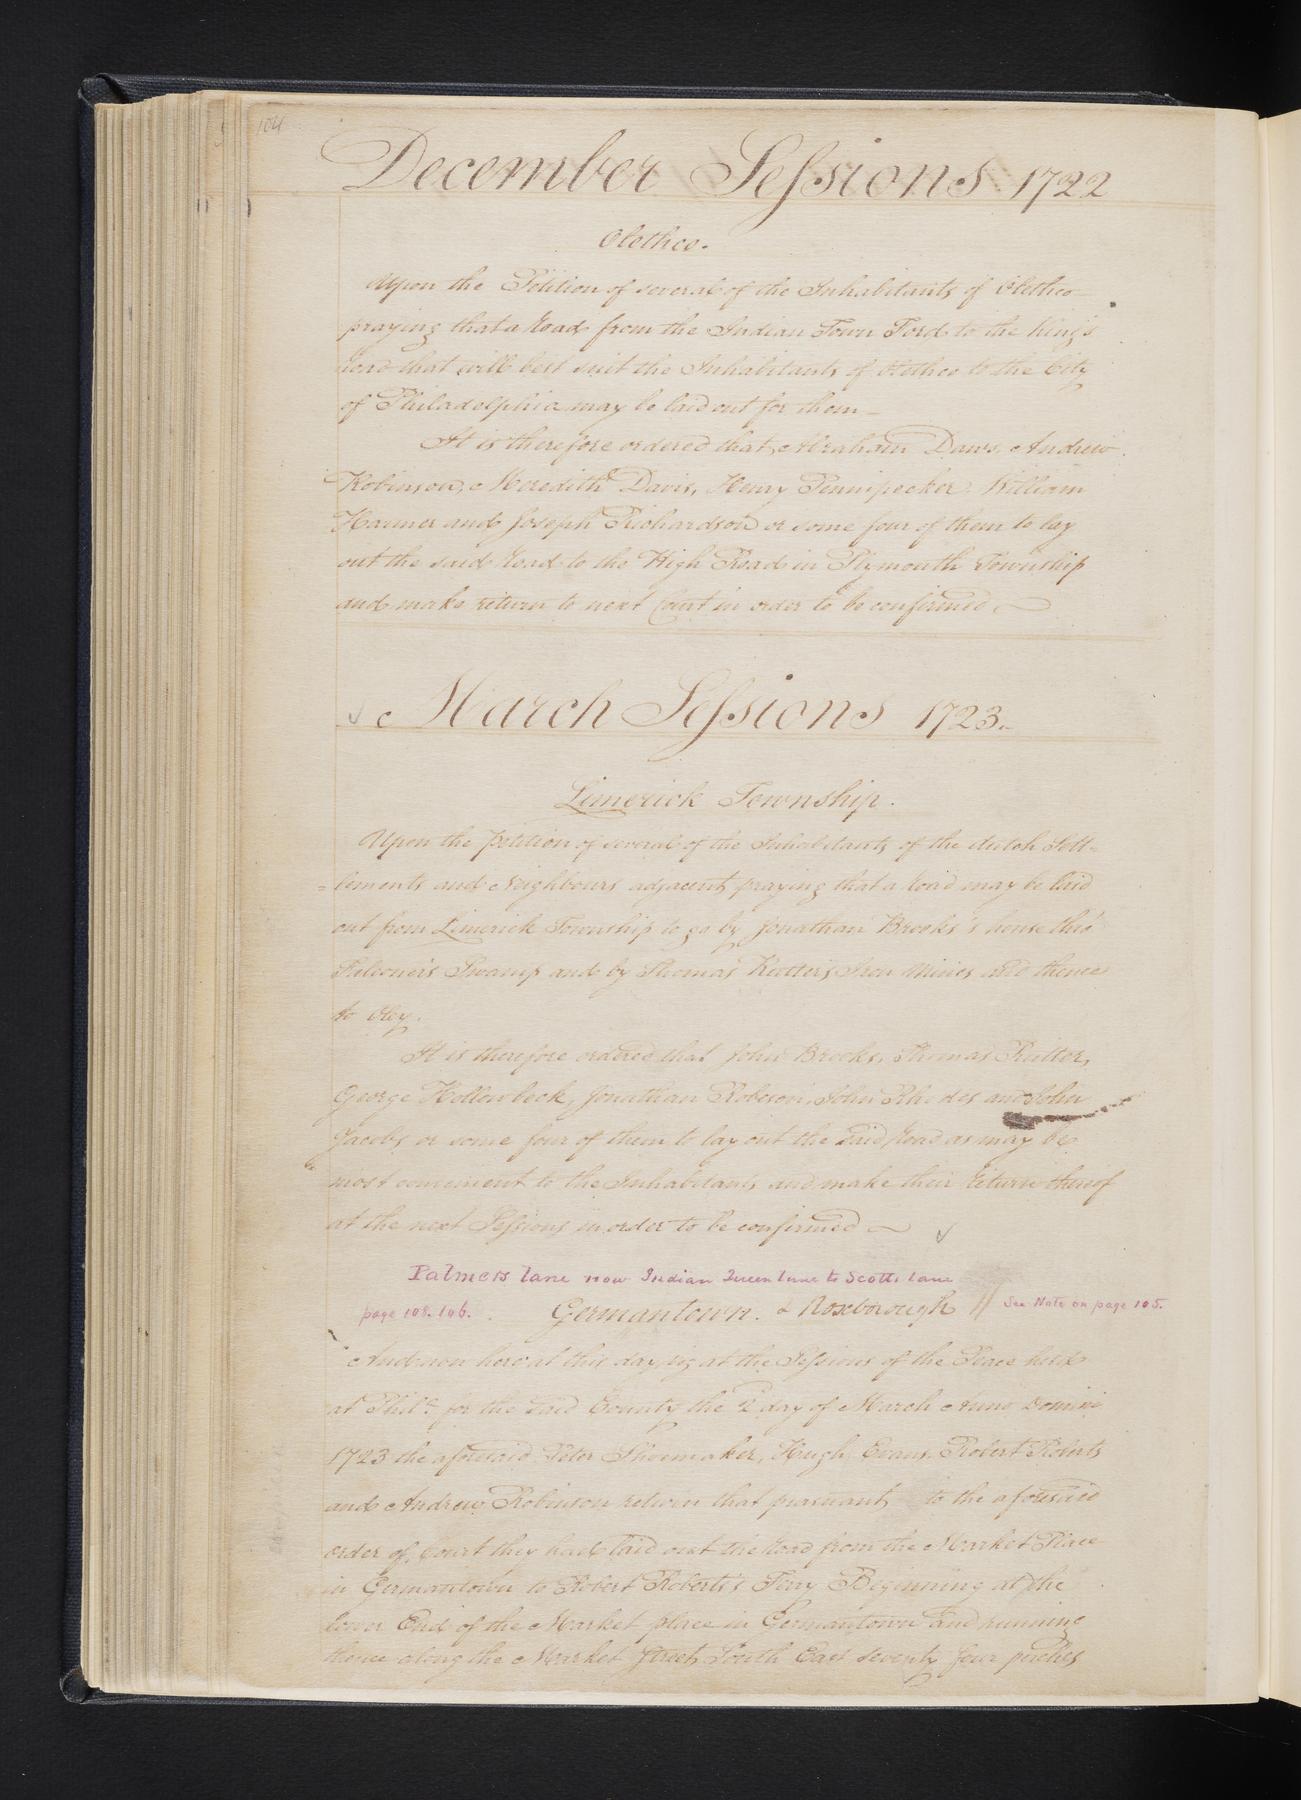 104
December Sessions 1722
Olethco.
Upon the Petition of several of the Inhabitants of Olethco
praying that a Road from the Indian Town Ford to the King's
Road that will best suit the Inhabitants of Olethco to the City
of Philadelphia may be laid out for them —
It is therefore ordered that Abraham Daws, Andrew
Robinson, Meredith Davis, Henry Pennipecker, William
Harmer and Joseph Richardson or some four of them to lay
out the said Road to the High Road in Plymouth Township
and make return to next Court in order to be confirmed
March Sessions 1723.
Limerick Township.
Upon the petition of several of the Inhabitants of the dutch Sett=
=lements and Neighbours adjacent, praying that a Road may be laid
out from Limerick Township to go by Jonathan Brooks's house thro'
Falconer's Swamp and by Thomas Rutter's Iron Mines and thence
to Oley.
It is therefore ordered that John Brooks, Thomas Rutter,
George Hollowbeck, Jonathan Robeson, John Rhodes and John
Jacobs or some four of them to lay out the said Road as may be
most convenient to the Inhabitants and make their return thereof
at the next Sessions in order to be confirmed ✓
Palmers Lane now Indian Queen Lane to Scotts Lane
page 108. 106. Germantown. & Roxborough // See Note on page 105.
And now here at this day, viz at the Sessions of the Peace held
at Phila for the said County the 2d day of March Anno Domini
1723 the aforesaid Peter Shoemaker, Hugh Evans, Robert Roberts
and Andrew Robinson return that pursuant to the aforesaid
order of Court they had laid out the Road from the Market Place
in Germantown to Robert Roberts's Ferry Beginning at the
lower End of the Market place in Germantown and running
thence along the Market Street South East seventy four perches